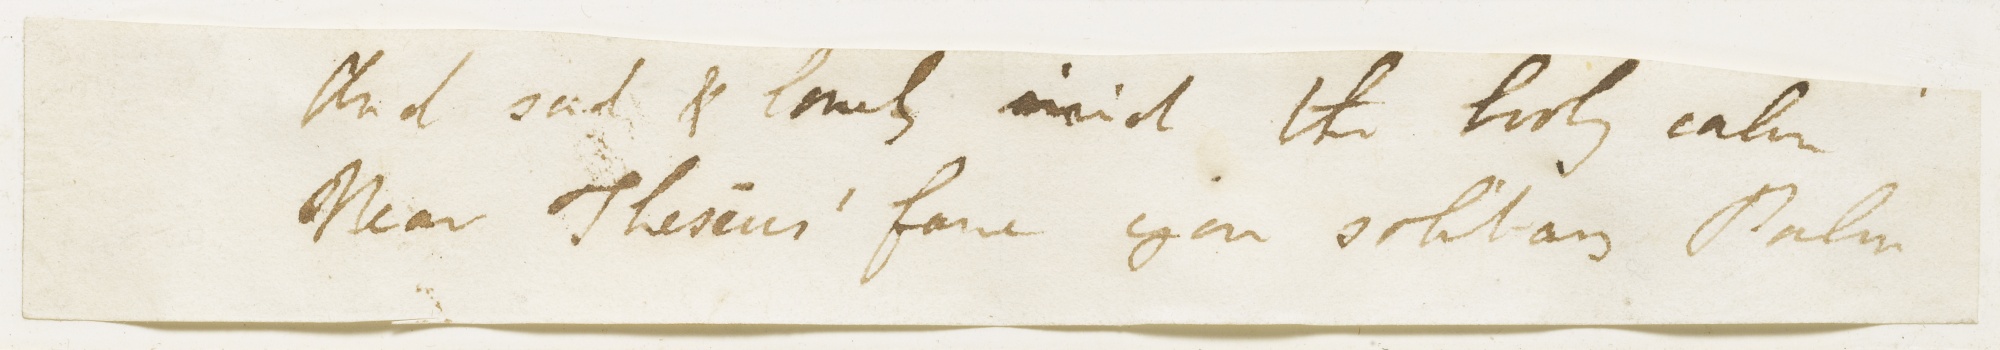 And sad & lonely mid the holy calm
Near Theseus' fane yon solitary Palm